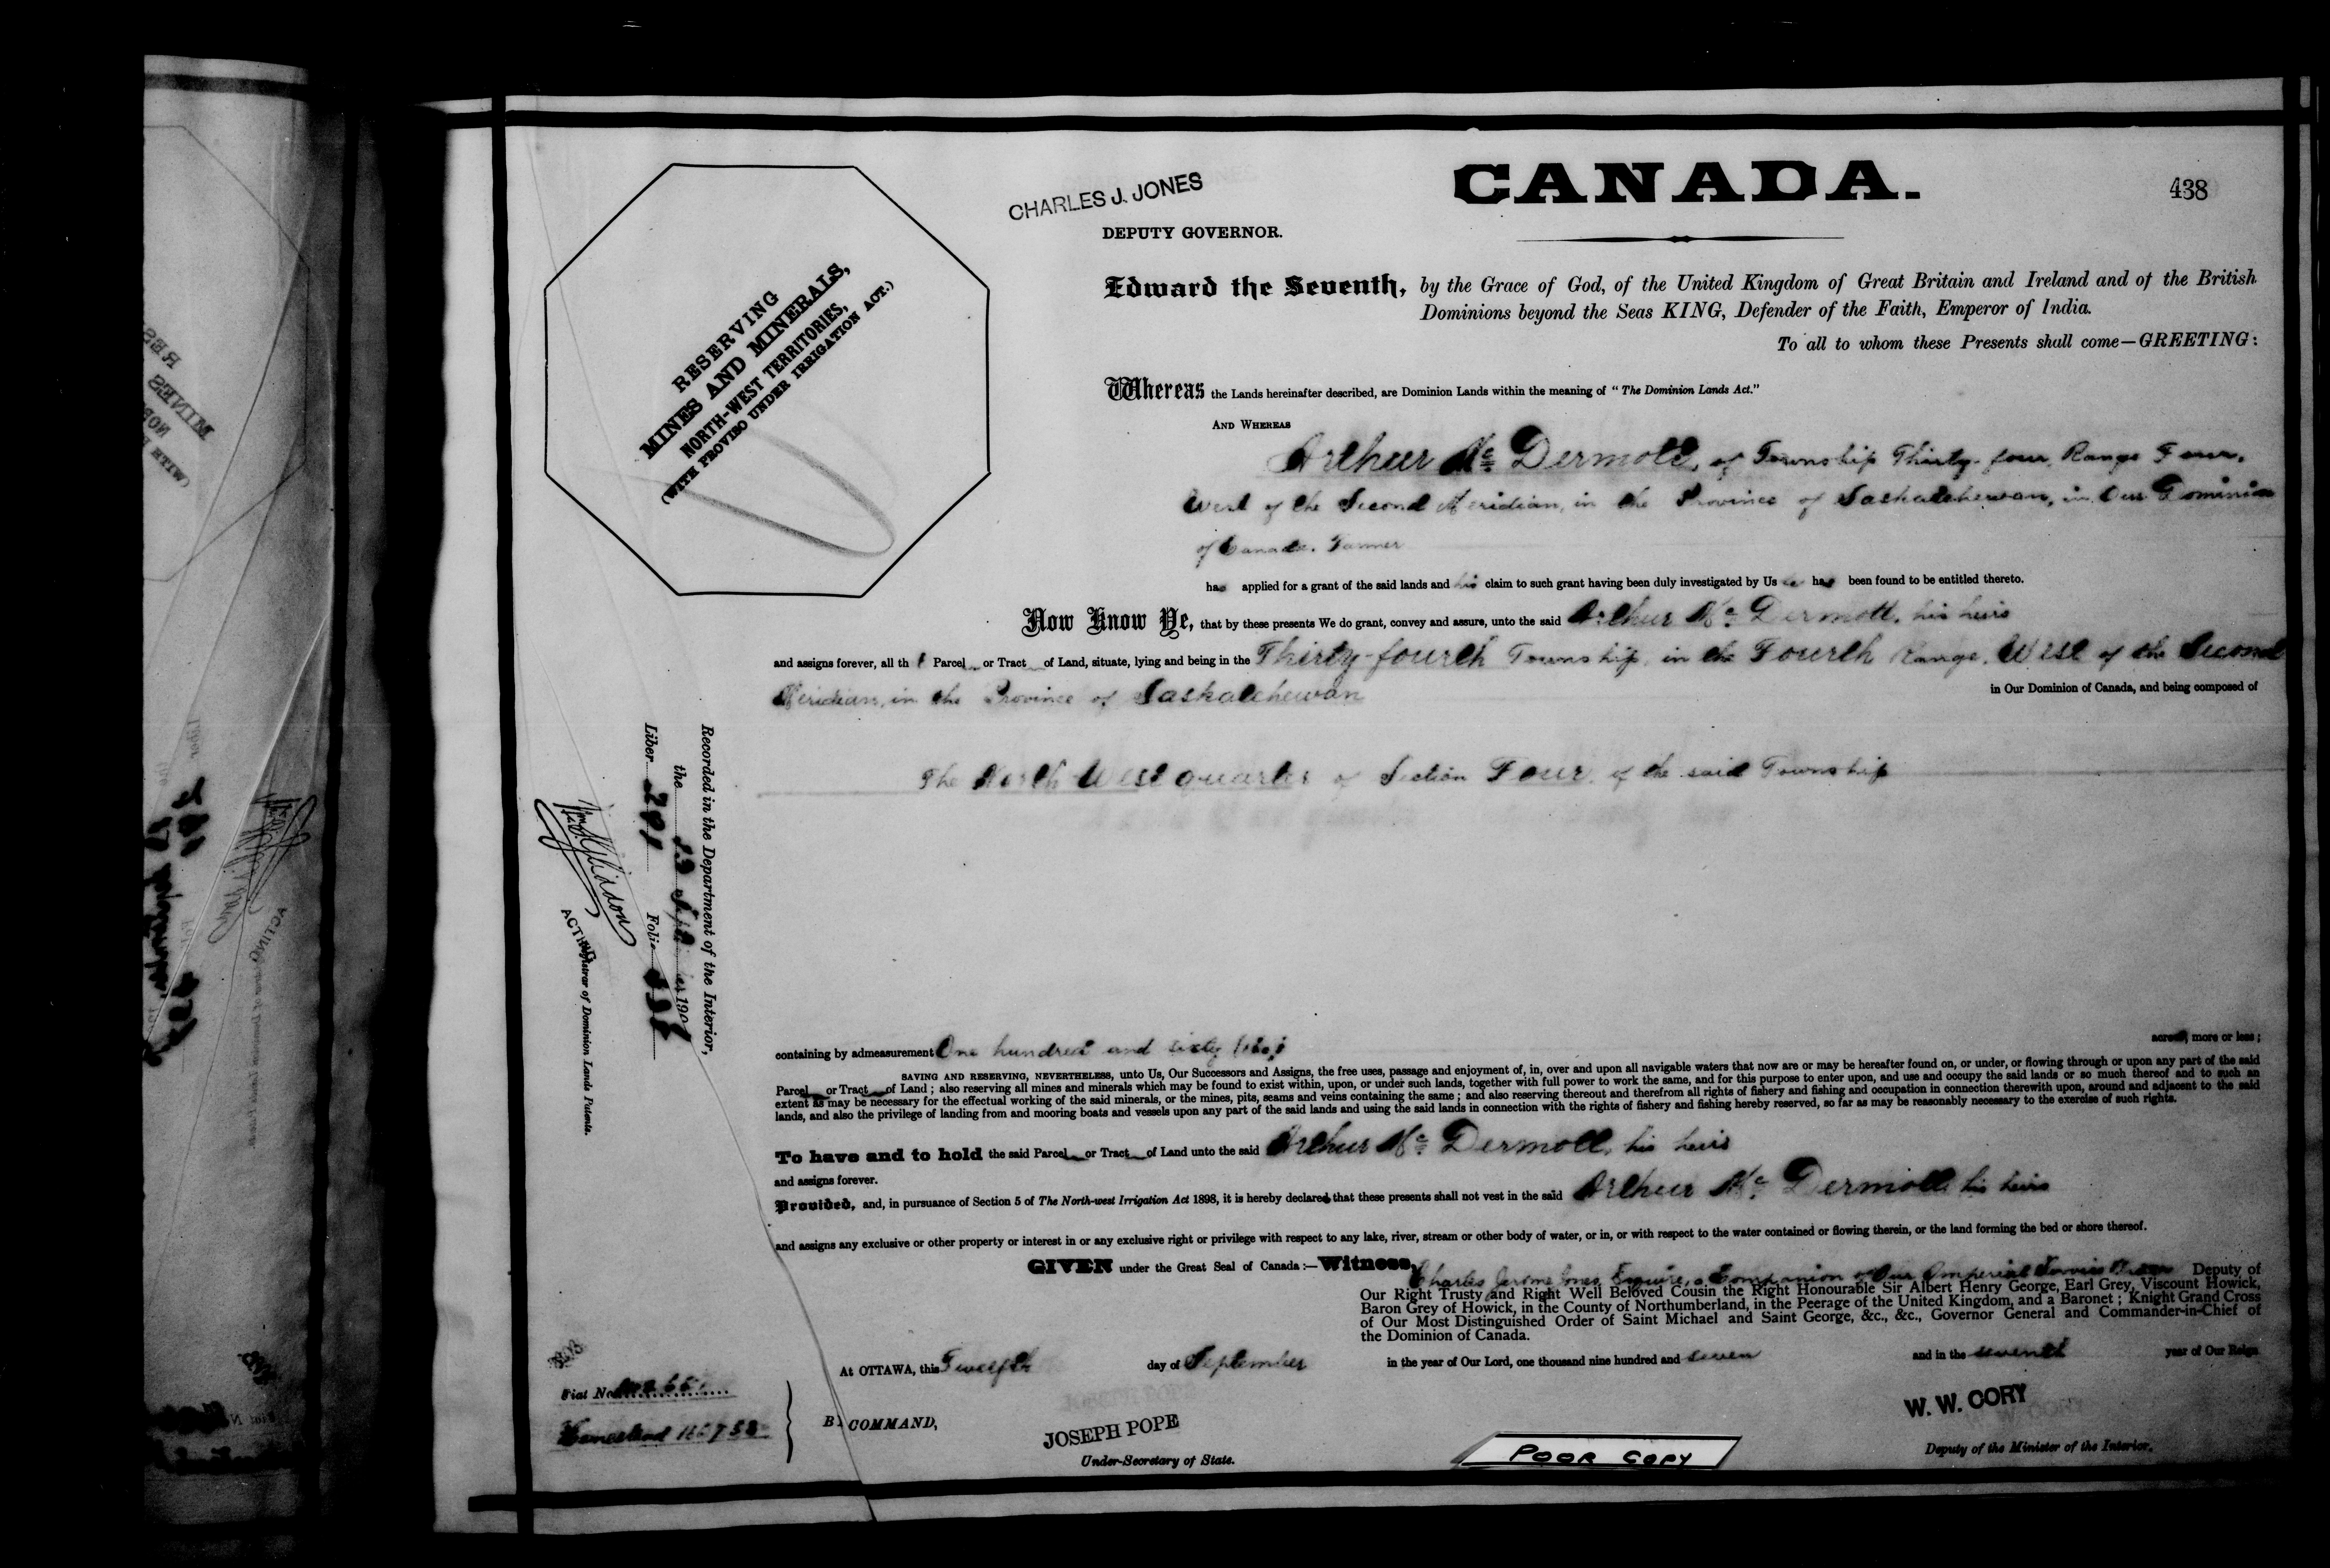 CHARLES J. JONES
DEPUTY GOVERNOR.
CANADA.
438
RESERVING
MINES AND MINERALS,
NORTH-WEST TERRITORIES,
(WITH PROVISO UNDER IRRIGATION ACT.)
Edward the Seventh, by the Grace of God, of the United Kingdom of Great Britain and Ireland and of the British
Dominions beyond the Seas KING, Defender of the Faith, Emperor of India.
To all to whom these Presents shall come—GREETING:
Whereas the Lands hereinafter described, are Dominion Lands within the meaning of "The Dominion Lands Act."
AND WHEREAS
Arthur Mc Dermott, of Township Thirty-four, Range Four,
West of the Second Meridian, in the Province of Saskatchewan, in Our Dominion
of Canada, Farmer
has applied for a grant of the said lands and his claim to such grant having been duly investigated by Us he has been found to be entitled thereto.
Now Know Ye, that by these presents We do grant, convey and assure, unto the said Arthur Mc Dermott, his heirs
and assigns forever, all th t Parcel or Tract of Land, situate, lying and being in the Thirty-fourth Township, in the Fourth Range, West of the Second
Meridian, in the Province of Saskatchewan in Our Dominion of Canada, and being composed of
The North West quarter of Section Four, of the said Township
Recorded in the Department of the Interior,
the 23 Sept 190
Liber 291 Folio 438
ACTING Registrar of Dominion Lands Patents.
containing by admeasurement One hundred and sixty (160) acres, more or less;
SAVING AND RESERVING, NEVERTHELESS, unto Us, Our Successors and Assigns, the free uses, passage and enjoyment of, in, over and upon all navigable waters that now are or may be hereafter found on, or under, or flowing through or upon any part of the said
Parcel or Tract of Land; also reserving all mines and minerals which may be found to exist within, upon, or under such lands, together with full power to work the same, and for this purpose to enter upon, and use and occupy the said lands or so much thereof and to such an
extent as may be necessary for the effectual working of the said minerals, or the mines, pits, seams and veins containing the same; and also reserving thereout and therefrom all rights of fishery and fishing and occupation in connection therewith upon, around and adjacent to the said
lands, and also the privilege of landing from and mooring boats and vessels upon any part of the said lands and using the said lands in connection with the rights of fishery and fishing hereby reserved, so far as may be reasonably necessary to the exercise of such rights.
To have and to hold the said Parcel or Tract of Land unto the said Arthur Mc Dermott, his heirs
and assigns forever.
Provided, and, in pursuance of Section 5 of The North-west Irrigation Act 1898, it is hereby declared that these presents shall not vest in the said Arthur Mc Dermott his heirs
and assigns any exclusive or other property or interest in or any exclusive right or privilege with respect to any lake, river, stream or other body of water, or in, or with respect to the water contained or flowing therein, or the land forming the bed or shore thereof.
GIVEN under the Great Seal of Canada:—Witness,
Charles Jerome Jones, Esquire, a Companion of Our Imperial Service Order Deputy of
Our Right Trusty and Right Well Beloved Cousin the Right Honourable Sir Albert Henry George, Earl Grey, Viscount Howick,
Baron Grey of Howick, in the County of Northumberland, in the Peerage of the United Kingdom, and a Baronet; Knight Grand Cross
of Our Most Distinguished Order of Saint Michael and Saint George, &c., &c., Governor General and Commander-in-Chief of
the Dominion of Canada.
At OTTAWA, this Twelfth day of September in the year of Our Lord, one thousand nine hundred and seven and in the seventh year of Our Reign
Fiat No.
Homestead 166758
B COMMAND,
JOSEPH POPE
Under-Secretary of State.
POOR COPY
W. W. CORY
Deputy of the Minister of the Interior.